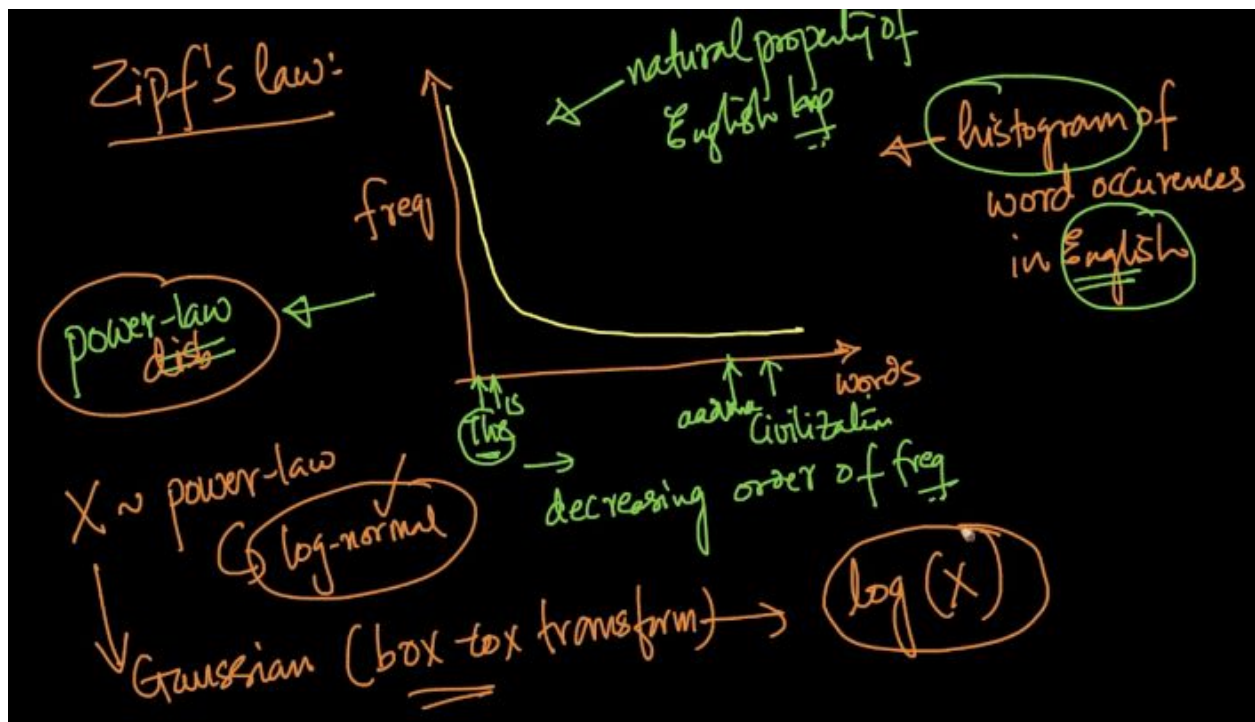 Zipf's law:
natural property of
English
histogram of
word occurences
in English
freq
power-law
dist
words
The is
Civilization
decreasing order of freq
X ~ power-law
log-normal
Gaussian (box-cox transform) → log (x)